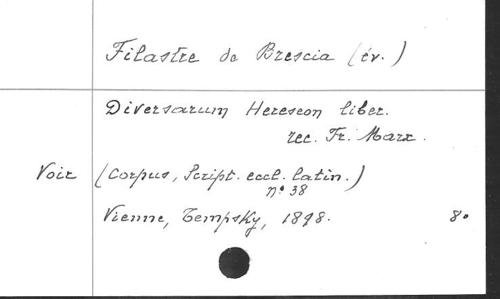 Filastre de Brescia (év.)
Diversarum Hereseon liber.
rec. Fr. Marx.
Voir (Corpus, Script. eccl. latin.)
n° 38
Vienne, Tempsky, 1898. 8°